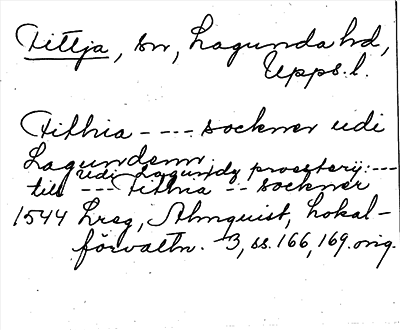 Fittja, sn, Lagunda hd,
Upps. l.
Fithia ---- sockner udi
Lagundenn
udi Lagundz prosterij: ---
till --- Fithia -- sockner
1544 Lreg, Almquist, Lokal-
förvaltn. 3, ss. 166, 169. orig.